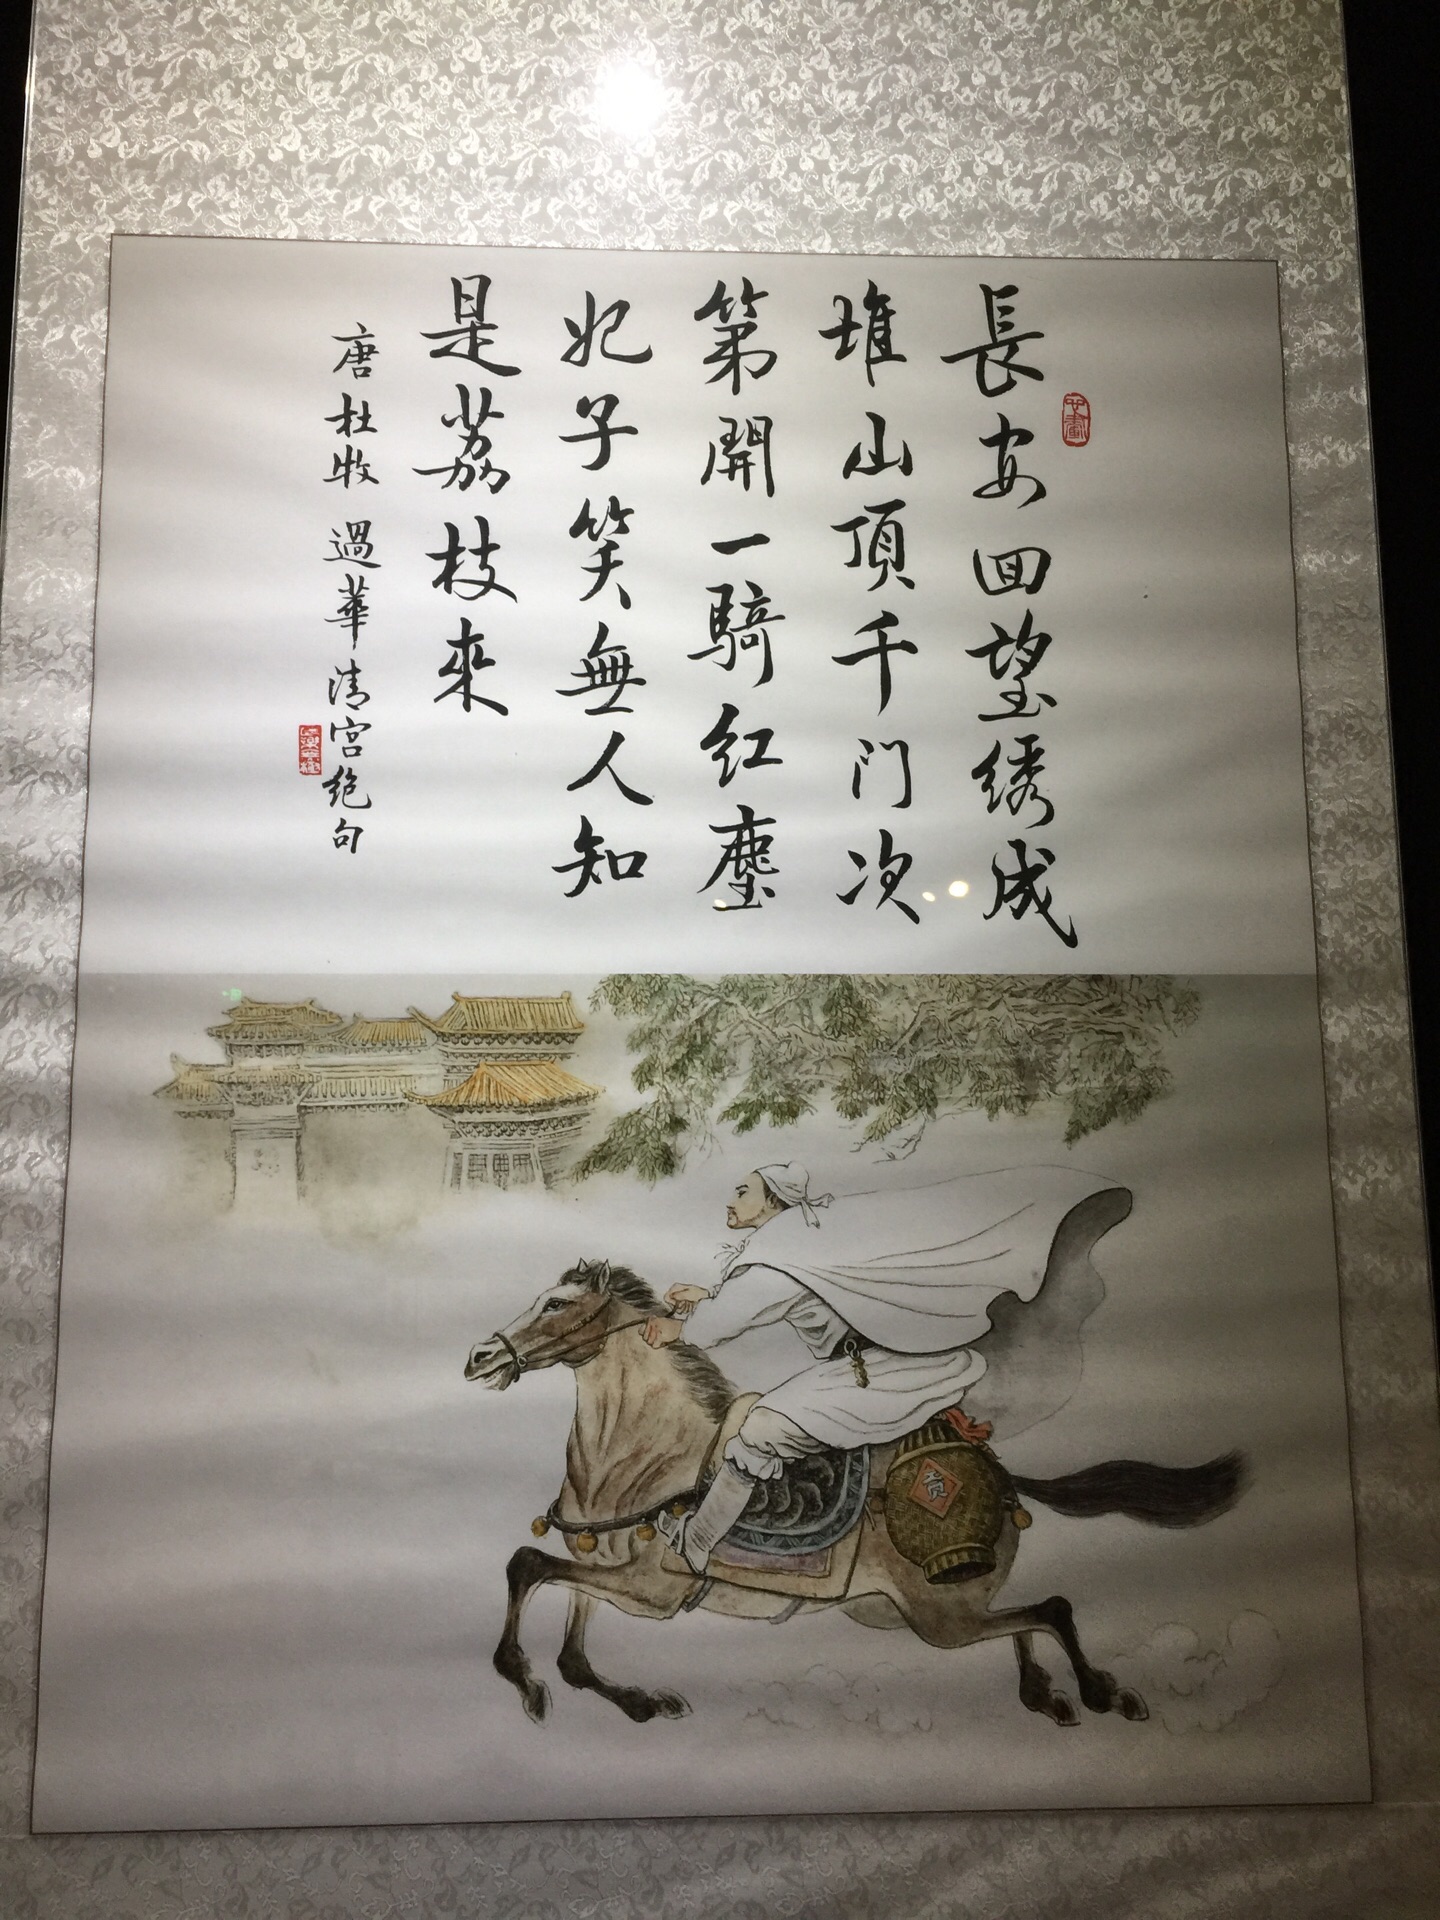 長安回望绣成
堆山頂千门次
第開一騎红塵
妃子笑無人知
是荔枝來
唐杜牧 過華清宫絶句
貢